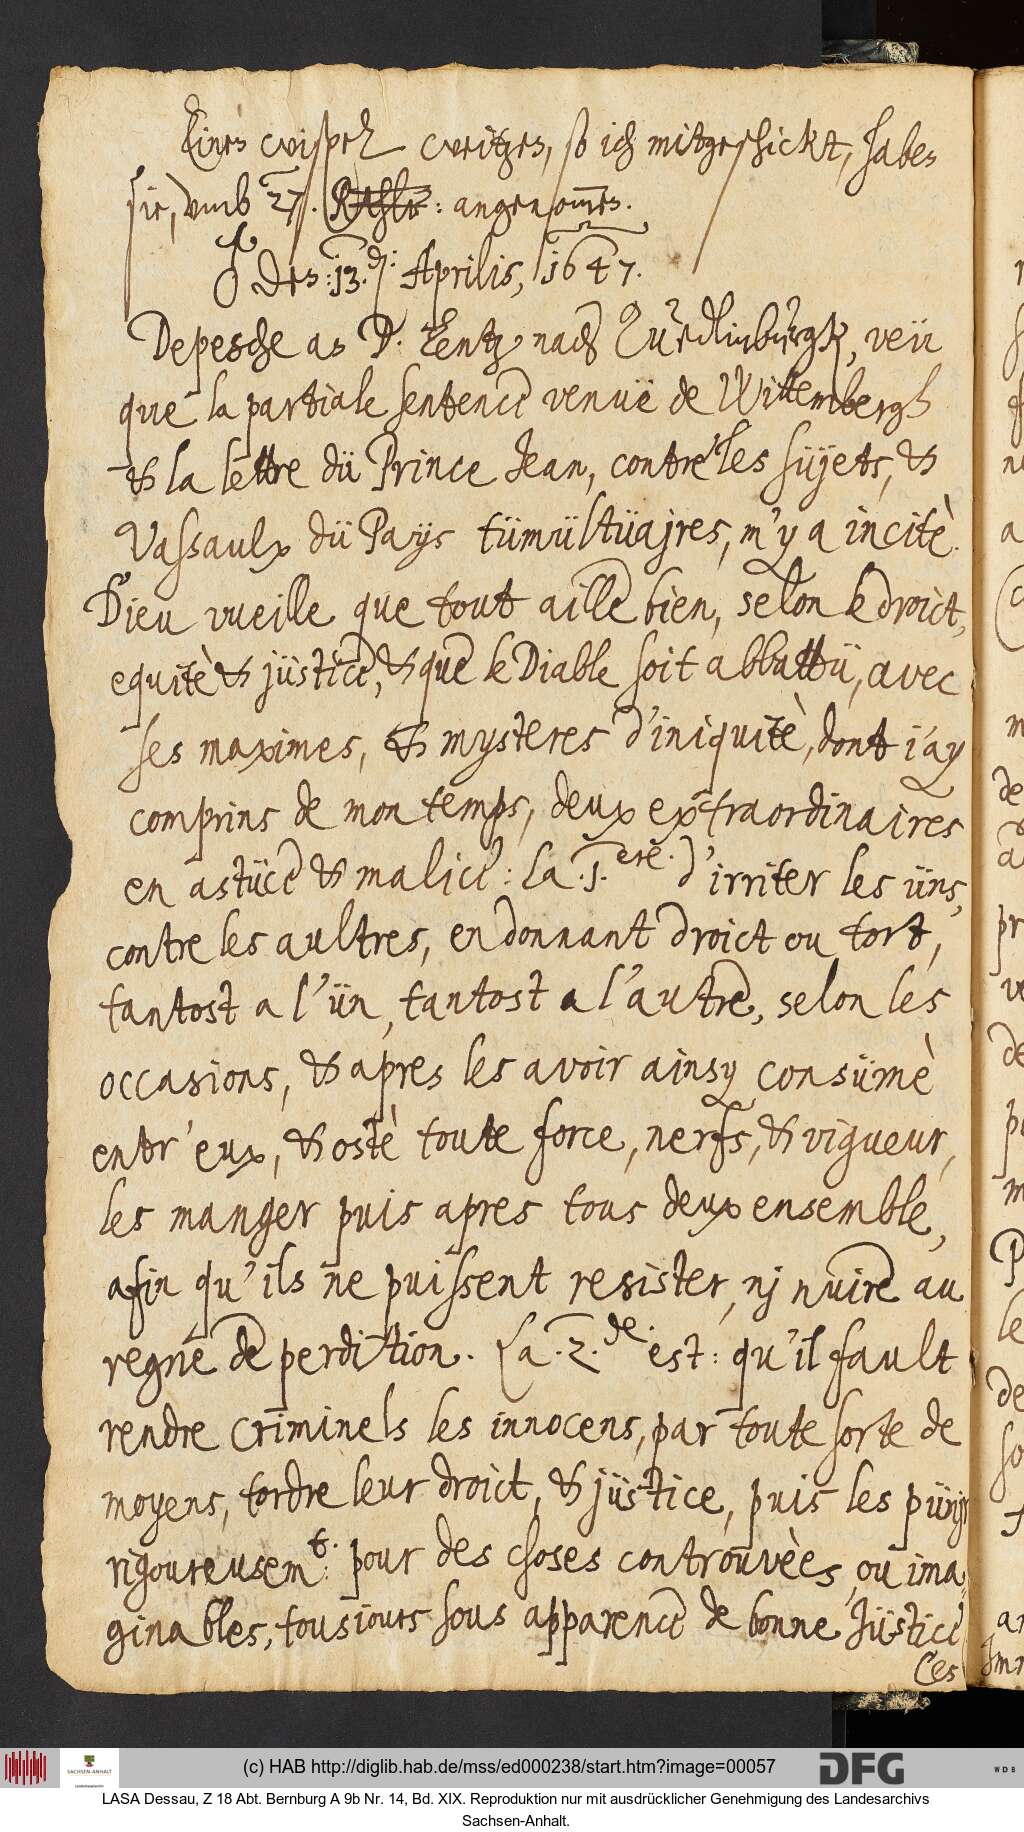 Einen wispel weitzen, so ich mitgeschickt, haben
sie, vmb 27. Rthlr: angenommen.
♂ den: 13. den: Aprilis, 1647.
Depesche an D. Lentz nach Quedlinburgk, veü
que la partiale sentence venuë de Wittembergh
& la lettre dü Prince Jean, contre les süjets, &
Vassaulx dü Pays tümültüajres, m'y a incitè.
Dieu vueille que tout aille bien, selon le droict,
equitè & jüstice, & que le Diable soit abbattü, avec
ses maximes, & mysteres d'iniquitè, dont i'ay
comprins de mon temps, deux extraordinaires
en astüce & malice: La .1.ere. d'irriter les üns,
contre les aultres, en donnant droict ou tort,
tantost a l'ün, tantost a l'autre, selon les
occasions, & apres les avoir ainsy consümè
entr'eux, & ostè toute force, nerfs, & vigueur,
les manger puis apres tous deux ensemble,
afin qu'ils ne puissent resister, nj nuire au
regne de perdition. La .2.de. est: qu'il fault
rendre criminels les innocens, par toute sorte de
moyens, tordre leur droict, & jüstice, puis les pünjr
rigoureusem.t: pour des choses controuvèes, ou ima-
ginables, tousiours sous apparence de bonne Jüstice
Ces
(c) HAB http://diglib.hab.de/mss/ed000238/start.htm?image=00057
SACHSEN-ANHALT
DFG
WDB
LASA Dessau, Z 18 Abt. Bernburg A 9b Nr. 14, Bd. XIX. Reproduktion nur mit ausdrücklicher Genehmigung des Landesarchivs
Sachsen-Anhalt.